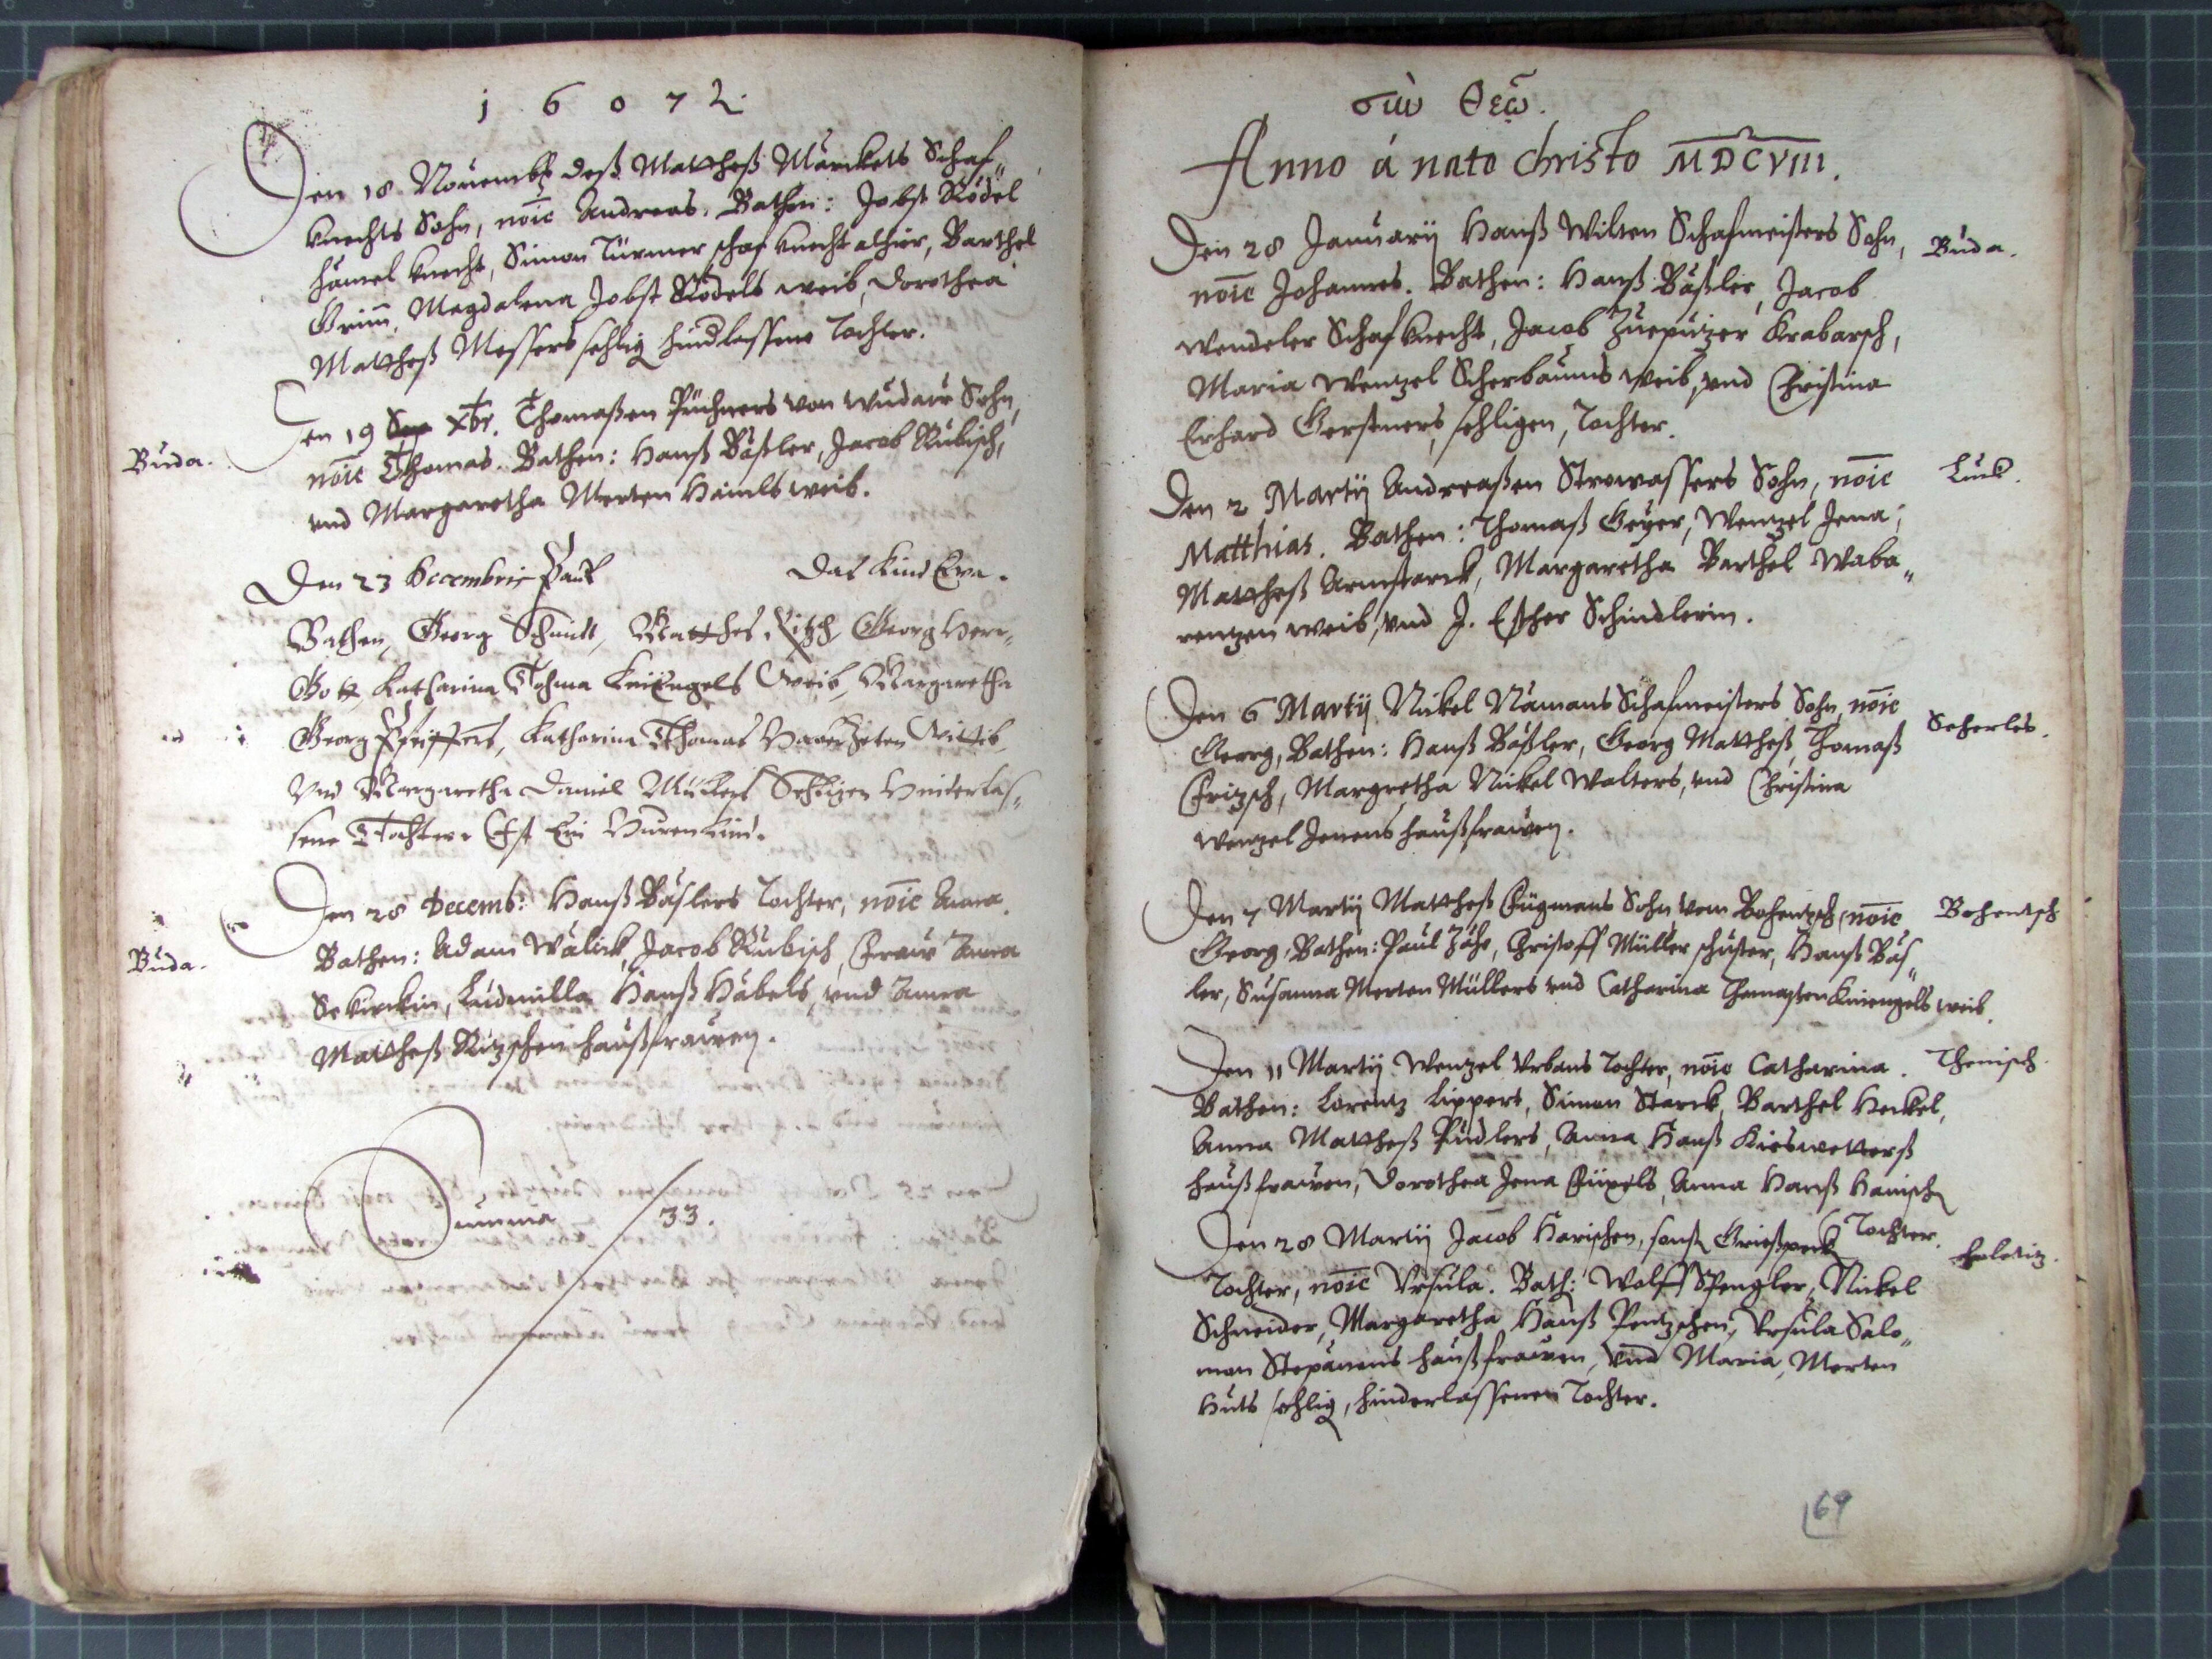 1 6 0 7
Den 18 Nouemb: deß Mattheß Märckets Schaf„
knechts Sohn, noīe Andreas. Bathen: Jobst Rödel
hamel knecht, Simon Türmer schaf knecht alhier, Barthel
Grim̄, Magdalena Jobst Rödels weib, Dorothea
Mattheß Messers sehlig hindlassene Tochter.
Buda.
Den 19 Xbr. Thomaßen Püchners von Sohn,
noīe Thomas. Bathen: Hanß Bäßler, Jacob Kubisch,
vnd Margaretha Merten Haimls weib.
Den 23 Decembris Paul Das Kind Eva.
Bathen, Georg Schmidt, Matthes Georg Herr„
Gott, Katharina Thoma Kniengels Weib, Margaretha
Georg Pfeiffers, Katharina Thomas Wittib
Vnd Margaretha Daniel Müllers Sehligen Hinterlas„
sene Tochter. Ist Ein Hurenkind.
Buda.
Den 28 Decemb: Hanß Bäslers Tochter, noīe Anna.
Bathen: Adam Jacob Kubisch, Fraw Anna
Ludmilla Hanß Häbels, vnd Anna
Mattheß Ritzschen haußfrawen.
Summa 33.
σὺν θεῷ.
Anno á nato Christo MDCVIII.
Den 28 Januarij Hanß Wilten Schafmeisters Sohn, Buda.
noīe Johannes. Bathen: Hanß Bäßler, Jacob
wendeler Schaf knecht, Jacob Krabarsch,
Maria Wentzel Scherbaums weib, vnd Christina
Erhard Gerstners, sehligen, Tochter.
Den 2 Martij Andreaßen Strowassers Sohn, noīe Luck.
Matthias. Bathen: Thomaß Geyer, Wentzel Jena,
Mattheß Armstarck, Margaretha Barthel Waba„
rentzen weib, vnd J. Esther Schindlerin.
Den 6 Martij Nickel Nämans Schafmeisters Sohn, noīe Scherles.
Georg, Bathen: Hanß Bäßler, Georg Mattheß, Thomaß
Fritzsch, Margretha Nickel Walters, vnd Christina
Wentzel Jenens haußfrawen.
Den 7 Martij Mattheß Fügmans Sohn vom Bohentzsch, noīe Bohentsch
Georg, Bathen: Paul Zähr, Christoff Müller schuster, Hanß Bäs„
ler, Susanna Merten Müllers vnd Catharina Thomaßen Kniengels weib.
Den 11 Martij Wentzel Vrbans Tochter, noīe Catharina. Thenisch.
Bathen: Lorentz Lippert, Simon Starck, Barthel Heckel,
Anna Mattheß Pudlers, Anna Hanß Kieswetterß
haußfrawen, Dorothea Jena Füxels, Anna Hanß Hanisch
Tochter.
Den 28 Martij Jacob Harischen, sonst Grießpeck
Tochter, noīe Vrsula. Bath: Wolff Spengler, Nickel
Schneider, Margaretha Hanß Pentzschen, Vrsula Salo„
mon Stepanens haußfrawen, vnd Maria, Merten
Huts sehlig, hinderlassenen Tochter.
69